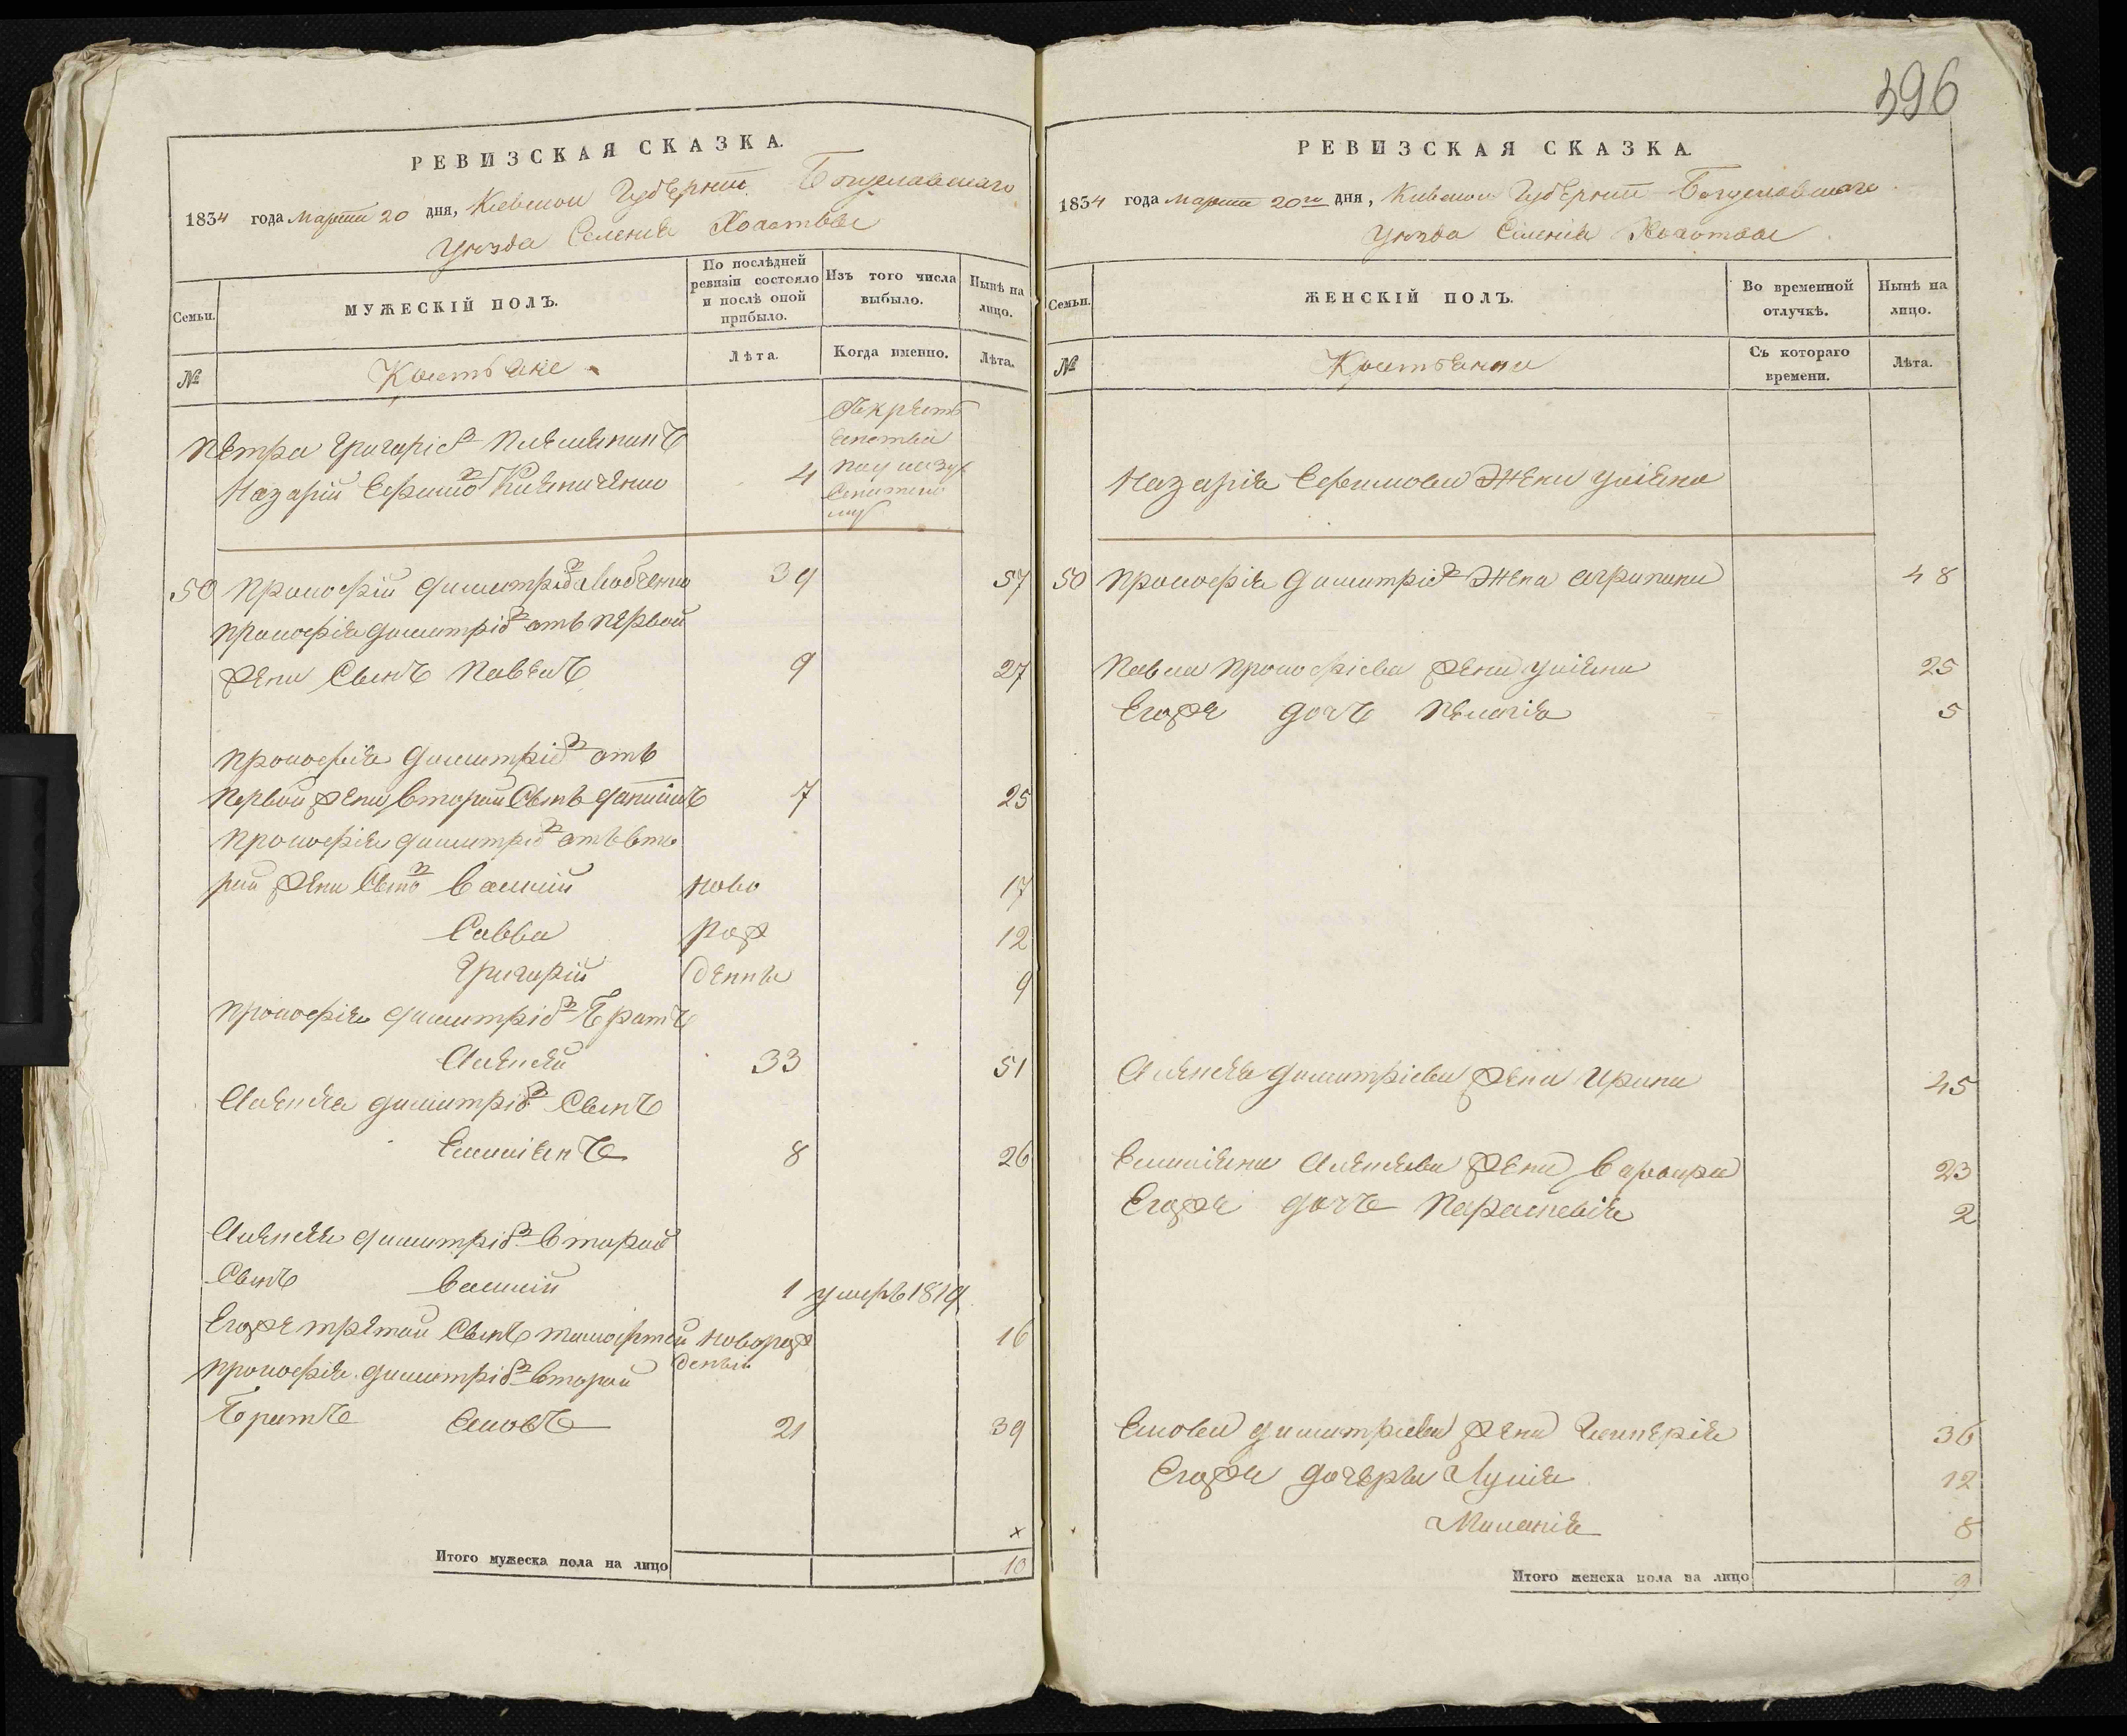 РЕВИЗСКАЯ СКАЗКА.
1834 года Марта 20 дня, Киевской Губернии Богуславскаго
уезда Селения
Семьи.
МУЖЕСКІЙ ПОЛЪ.
По послѣдней ревизіи состояло и послѣ оной прибыло.
Изъ того числа выбыло.
Нынѣ на лицо.
№
Крестьяне
Лѣта.
Когда именно.
Лѣта.
Петра Григорьев племянникъ
Назарій Ефимов 4
50 Прокофій Димитріев 39 57
Прокофія Димитріев отъ первой
жены Сынъ Павелъ 9 27
Прокофія Димитріев отъ
Первой жены второй Сынъ Даниилъ 7 25
Прокофія Димитріев отъ вто
рой жены Сыно Василій ново 17
Савва рож 12
Григорій денны 9
Прокофія Димитріев Братъ
Алексей 33 51
Алексея Димитріев Сынъ
Емиліянъ 8 26
Алексея Димитріев второй
Сынъ Василій 1 умеръ 1819
Егоже третий Сынъ Тимофтей новорож
денъй 16
Прокофія Димитріев второй
Братъ 21 39
Итого мужеска пола на лицо 10
396
РЕВИЗСКАЯ СКАЗКА.
1834 года Марта 20го дня, Киевской Губернии Богуславскаго
уезда Селения
Семьи.
ЖЕНСКІЙ ПОЛЪ.
Во временной отлучкѣ.
Нынѣ на лицо.
№
Крестьянки
Съ котораго времени.
Лѣта.
Назарія Ефимова Жена Уліяна
50 Прокофія Димитріев Жена Агрипина 48
Павла Прокофіева жена Уліяна 25
Егоже дочъ 5
Алексея Димитріева жена Ирина 45
Емиліяна Алексеева жена Варвара 23
Егоже дочъ Параскевія 2
Димитриева жена 36
Егоже дочеры 12
Миланія 8
Итого женска пола на лицо 9